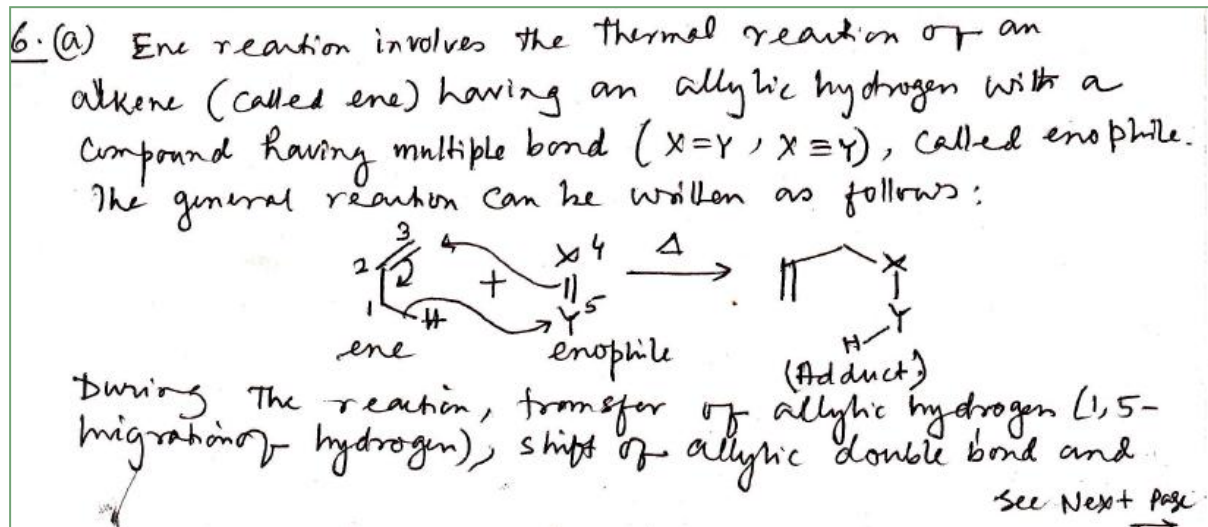 6. (a) Ene reaction involves the thermal reaction of an
alkene (called ene) having an allylic hydrogen with a
compound having multiple bond (X=Y, X≡Y), called enophile.
The general reaction can be written as follows:
3 X 4 Δ
2 + X
1 H Y 5 Y
ene enophile H
(Adduct)
During the reaction, transfer of allylic hydrogen (1,5-
migration of hydrogen), shift of allylic double bond and
See Next Page